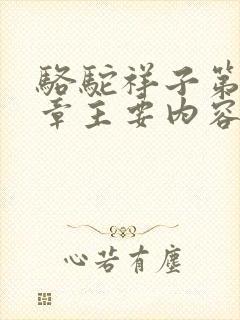 駱駝祥子第
章主要内容
心若有塵